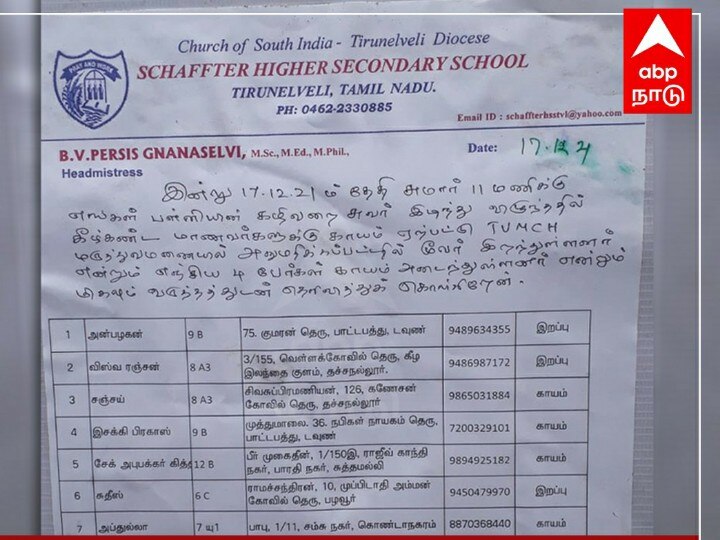 Church of South India - Tirunelveli Diocese
SCHAFFTER HIGHER SECONDARY SCHOOL
TIRUNELVELI, TAMIL NADU.
PH: 0462-2330885
PRAY AND WORK
abp
நாடு
Email ID : schaffterhsstvl@yahoo.com
B.V.PERSIS GNANASELVI, M.Sc., M.Ed., M.Phil.,
Headmistress
Date: 17.12.21
இன்று 17.12.21ம் தேதி சுமார் 11 மணிக்கு
எங்கள் பள்ளியின் கழிவறை சுவர் இடிந்து விழுந்ததில்
கீழ்கண்ட மாணவர்களுக்கு காயம் ஏற்பட்டு TVMCH
மருத்துவமனையில் அனுமதிக்கப்பட்டதில் மூவர் இறந்துள்ளனர்
என்றும் எஞ்சிய 4 பேர்கள் காயம் அடைந்துள்ளனர் என்றும்
மிகவும் வருத்தத்துடன் தெரிவித்துக் கொள்கிறேன்.
1 அன்பழகன் 9 B 75. குமரன் தெரு, பாட்டபத்து, டவுண் 9489634355 இறப்பு
2 விஸ்வ ரஞ்சன் 8 A3 3/155, வெள்ளக்கோவில் தெரு, கீழ இலந்தை குளம், தச்சநல்லூர். 9486987172 இறப்பு
3 சஞ்சய் 8 A3 சிவசுப்பிரமணியன், 126, கணேசன் கோவில் தெரு, தச்சநல்லூர் 9865031884 காயம்
4 இசக்கி பிரகாஸ் 9 B முத்துமாலை. 36. நபிகள் நாயகம் தெரு, பாட்டபத்து, டவுண் 7200329101 காயம்
5 சேக் அபுபக்கர் கித் 12 B பீர் முகைதீன், 1/150இ, ராஜீவ் காந்தி நகர், பாரதி நகர், சுத்தமல்லி 9894925182 காயம்
6 சுதீஸ் 6 C ராமச்சந்திரன், 10, முப்பிடாதி அம்மன் கோவில் தெரு, பழவூர் 9450479970 இறப்பு
7 அப்துல்லா 7 யு1 பாபு, 1/11, சம்சு நகர், கொண்டாநகரம் 8870368440 காயம்